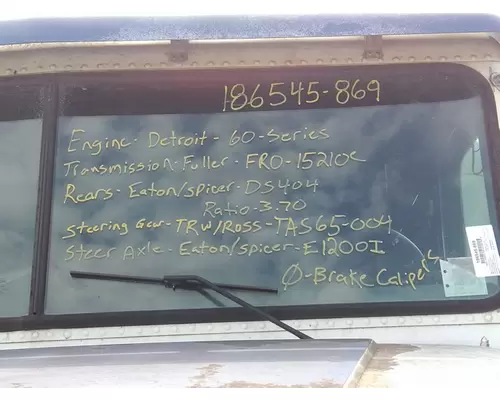 186545-869
Engine- Detroit- 60-Series
Transmission-Fuller- FRO-15210c
Rears- Eaton/spicer-DS404
Ratio-3.70
Steering Gear-TRW/Ross-TAS65-004
Steer Axle-Eaton/spicer-E1200I
Ø-Brake Calipers